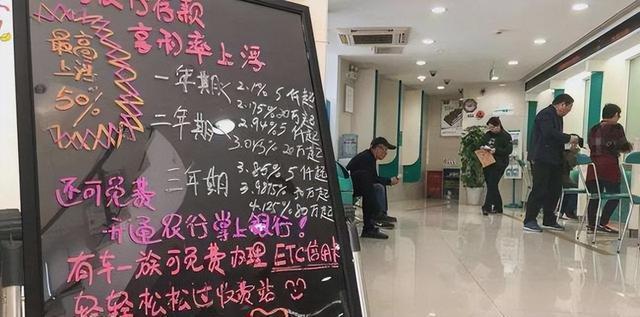 行存款
享利率上浮
最高
上浮
50%
一年期
2.1% 5仟起
2.175% 20万起
二年期
2.94% 5仟起
3.045% 20万起
三年期
3.85% 5仟起
3.9875% 30万起
4.125% 80万起
还可免费
开通农行掌上银行!
有车一族可免费办理ETC信用卡
轻轻松松过收费站